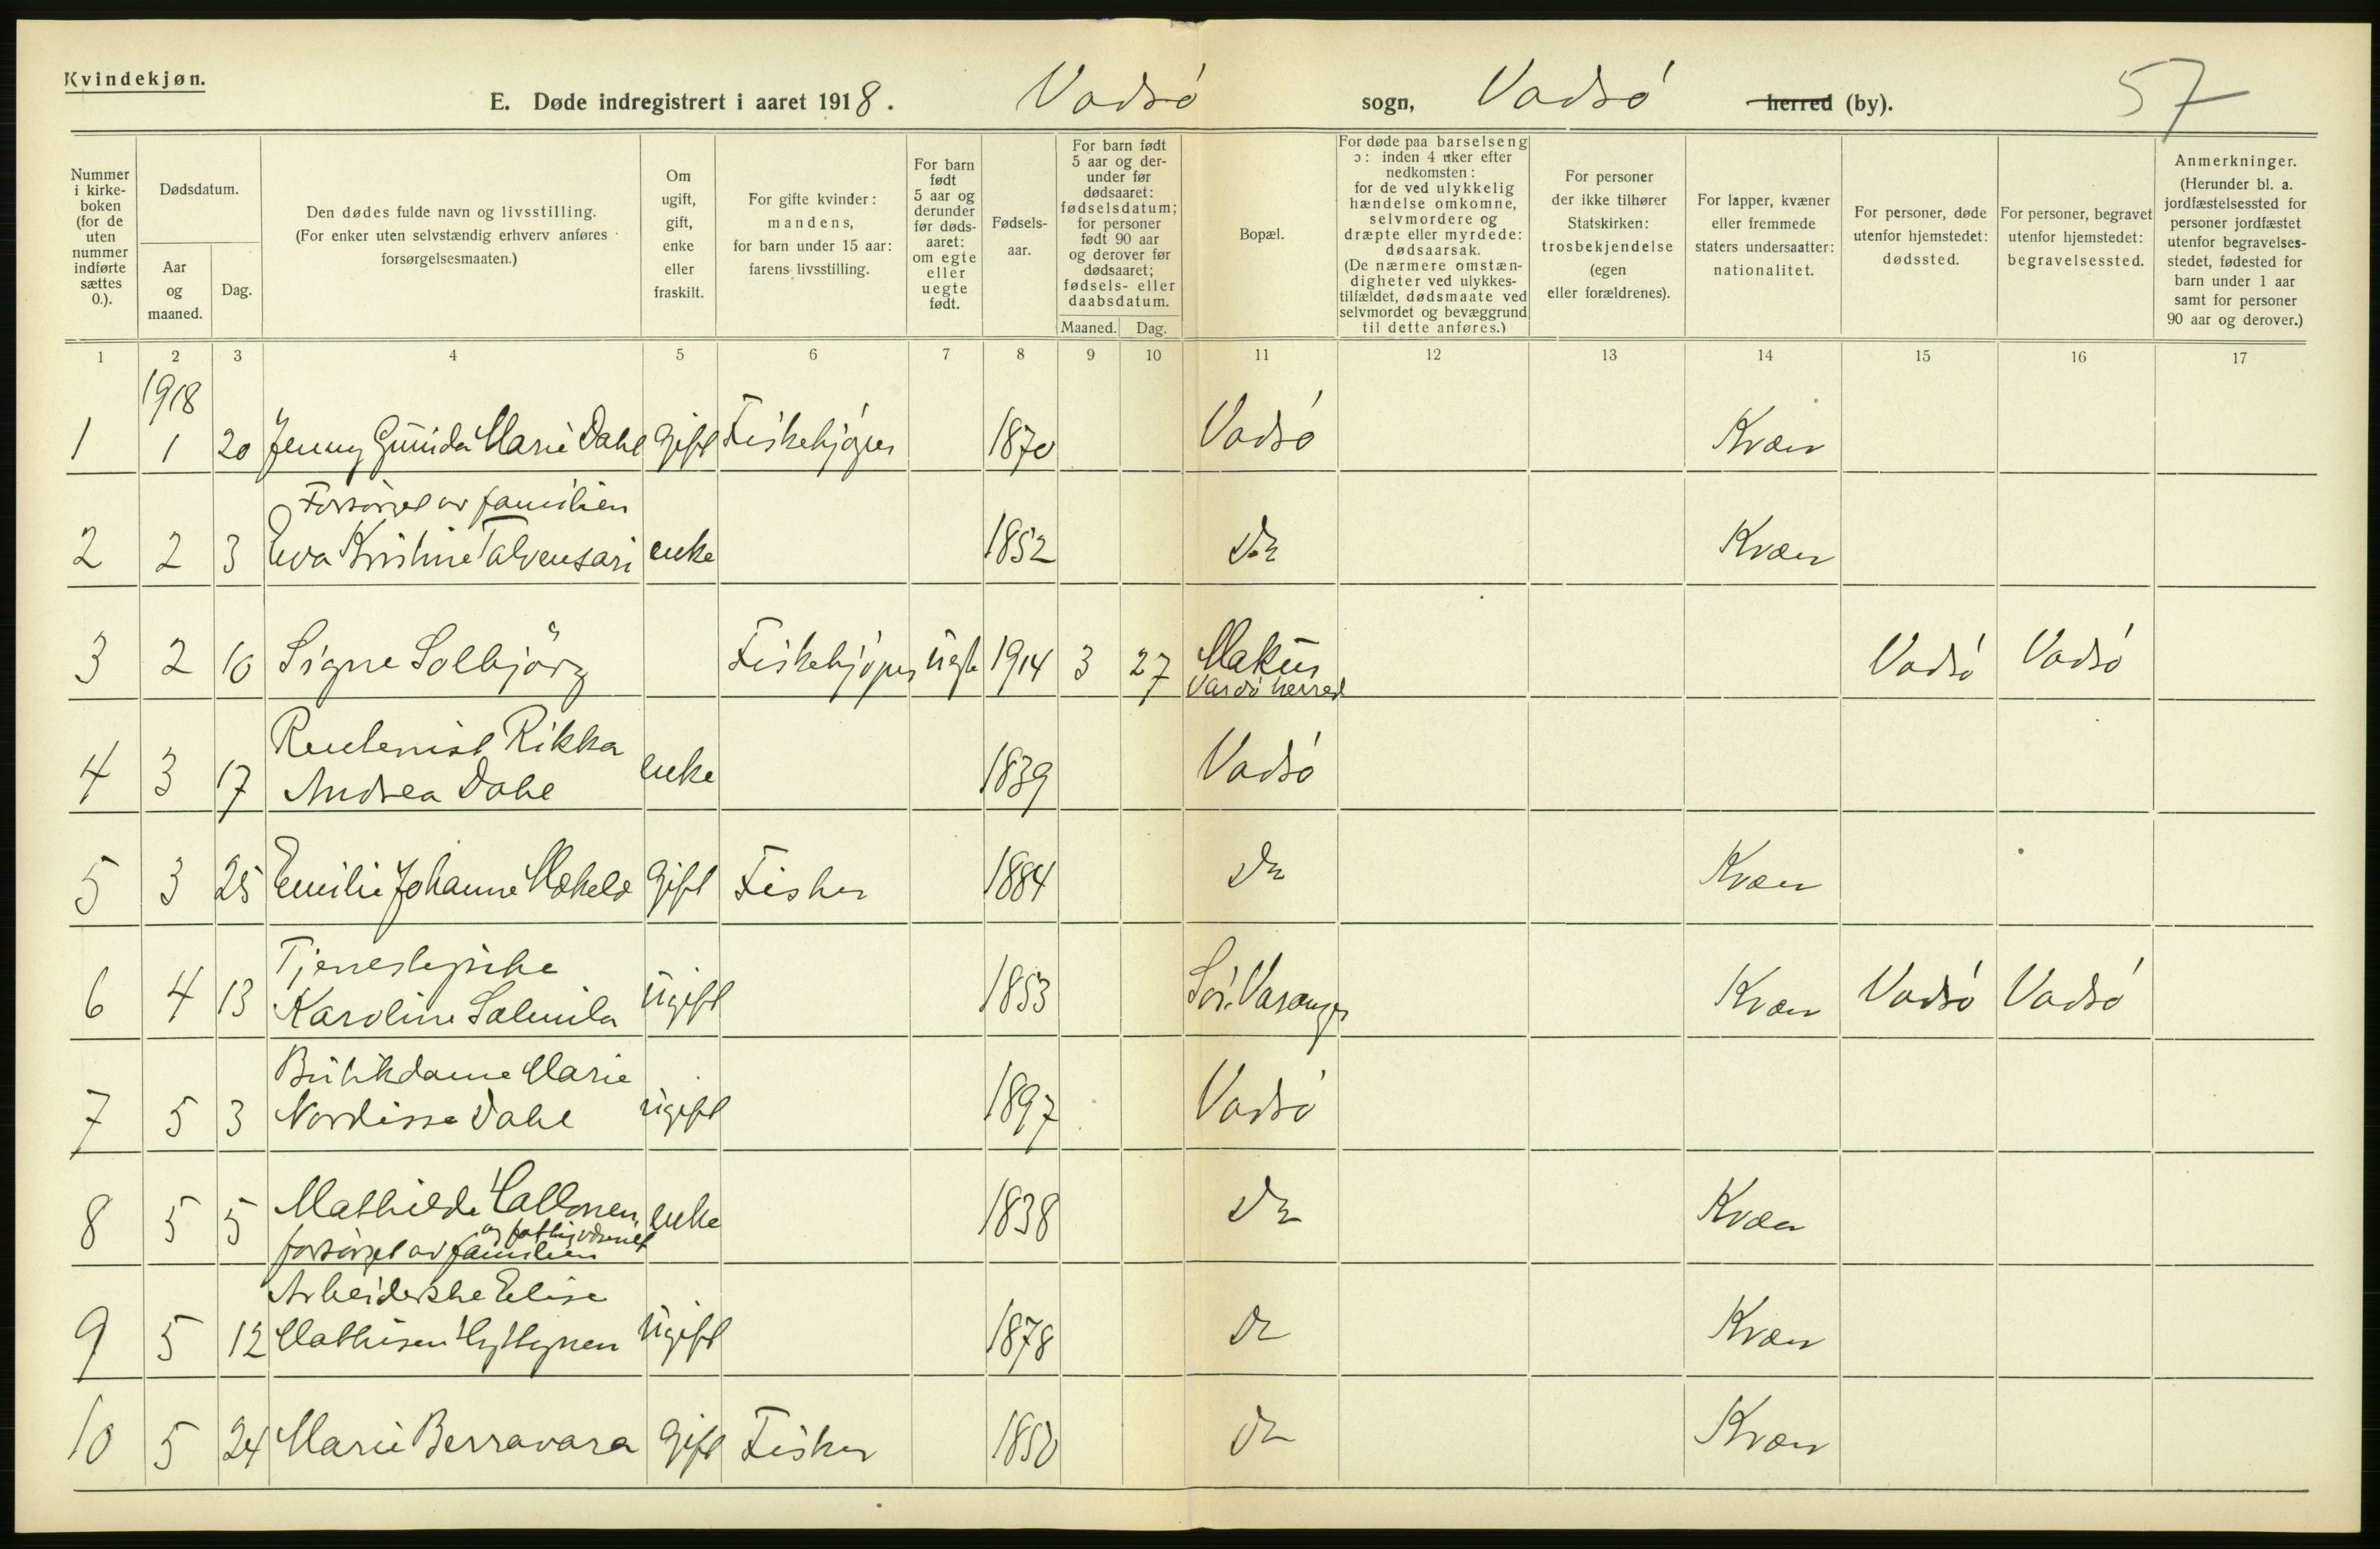 Kvindekjøn.
E. Døde indregistrert i aaret 1918. Vadsö sogn, Vadsö herred (by). 57
Nummer i kirke-boken (for de uten nummer indførte sættes 0.).
Dødsdatum.
Aar og maaned.
Dag.
Den dødes fulde navn og livsstilling.
(For enker uten selvstændig erhverv anføres forsørgelsesmaaten.)
Om ugift, gift, enke eller fraskilt.
For gifte kvinder: mandens, for barn under 15 aar: farens livsstilling.
For barn født 5 aar og derunder før døds-aaret: om egte eller uegte født.
Fødsels-aar.
For barn født 5 aar og der-under før dødsaaret: fødselsdatum; for personer født 90 aar og derover før dødsaaret; fødsels- eller daabsdatum.
Maaned. Dag.
Bopæl.
For døde paa barselseng ɔ: inden 4 uker efter nedkomsten: for de ved ulykkelig hændelse omkomne, selvmordere og dræpte eller myrdede: dødsaarsak. (De nærmere omstæn-digheter ved ulykkes-tilfældet, dødsmaate ved selvmordet og bevæggrund til dette anføres.)
For personer der ikke tilhører Statskirken: trosbekjendelse (egen eller forældrenes).
For lapper, kvæner eller fremmede staters undersaatter: nationalitet.
For personer, døde utenfor hjemstedet: dødssted.
For personer, begravet utenfor hjemstedet: begravelsessted.
Anmerkninger. (Herunder bl. a. jordfæstelsessted for personer jordfæstet utenfor begravelses-stedet, fødested for barn under 1 aar samt for personer 90 aar og derover.)
1 2 3 4 5 6 7 8 9 10 11 12 13 14 15 16 17
1918
1 1 20 Jenny Gunida Marie Dahl gift Fiskekjöper 1870 Vadsö Kvæn
Forsörget av familien
2 2 3 Eva Kristine Talvensari enke 1852 Do Kvæn
3 2 10 Signe Solbjörg Fiskekjöper uegte 1914 3 27 Makur Vadsö Vadsö
Vardö herred
Rentenist Rikka
4 3 17 Andrea Dahl enke 1839 Vadsö
5 3 25 Emilie Johanne Mækelæ gift Fisker 1884 Do Kvæn
Tjenestepike
6 4 13 Karoline Salmila ugift 1853 Sör-Varanger Kvæn Vadsö Vadsö
Butikdame Marie
7 5 3 Nordisse Dahl ugift 1897 Vadsö
8 5 5 Mathilde Hallonen, enke 1838 Do Kvæn
og fattigvæsenet
forsörget av familien
Arbeiderske Elise
9 5 12 Mathisen Hyttynen ugift 1878 Do Kvæn
10 5 24 Marie Berravara gift Fisker 1850 Do Kvæn